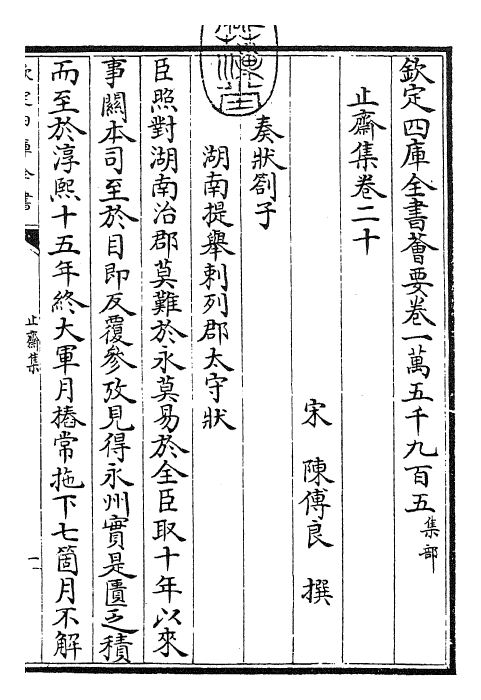 欽定四庫全書薈要卷一萬五千九百五集部
止齋集卷二十
宋 陳傅良 撰
奏狀劄子
湖南提舉剌列郡太守狀
臣照對湖南治郡莫難於永莫易於全臣取十年以來
事闗本司至於目即反覆參攷見得永州實是匱乏積
而至於淳熙十五年終大軍月樁常拖下七箇月不解
欽定四庫全書
止齋集
一